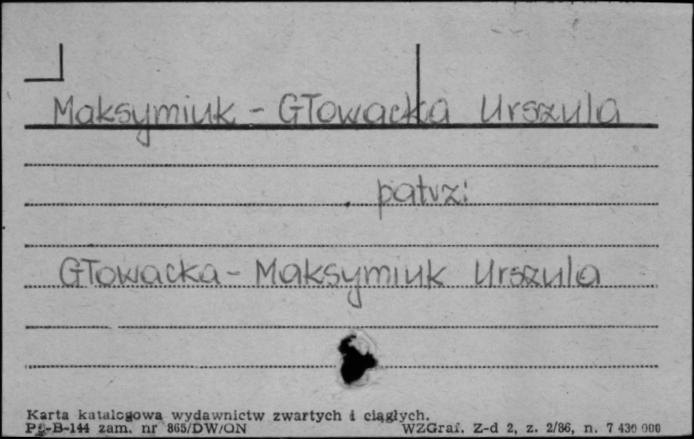 Maksymiuk - Głowacka Urszula
patrz:
Głowacka - Maksymiuk Urszula
Karta katalogowa wydawnictw zwartych i ciągłych.
Pu-B-144 zam. nr 865/DW/ON WZGraf. Z-d 2, z. 2/86, n. 7 430 000